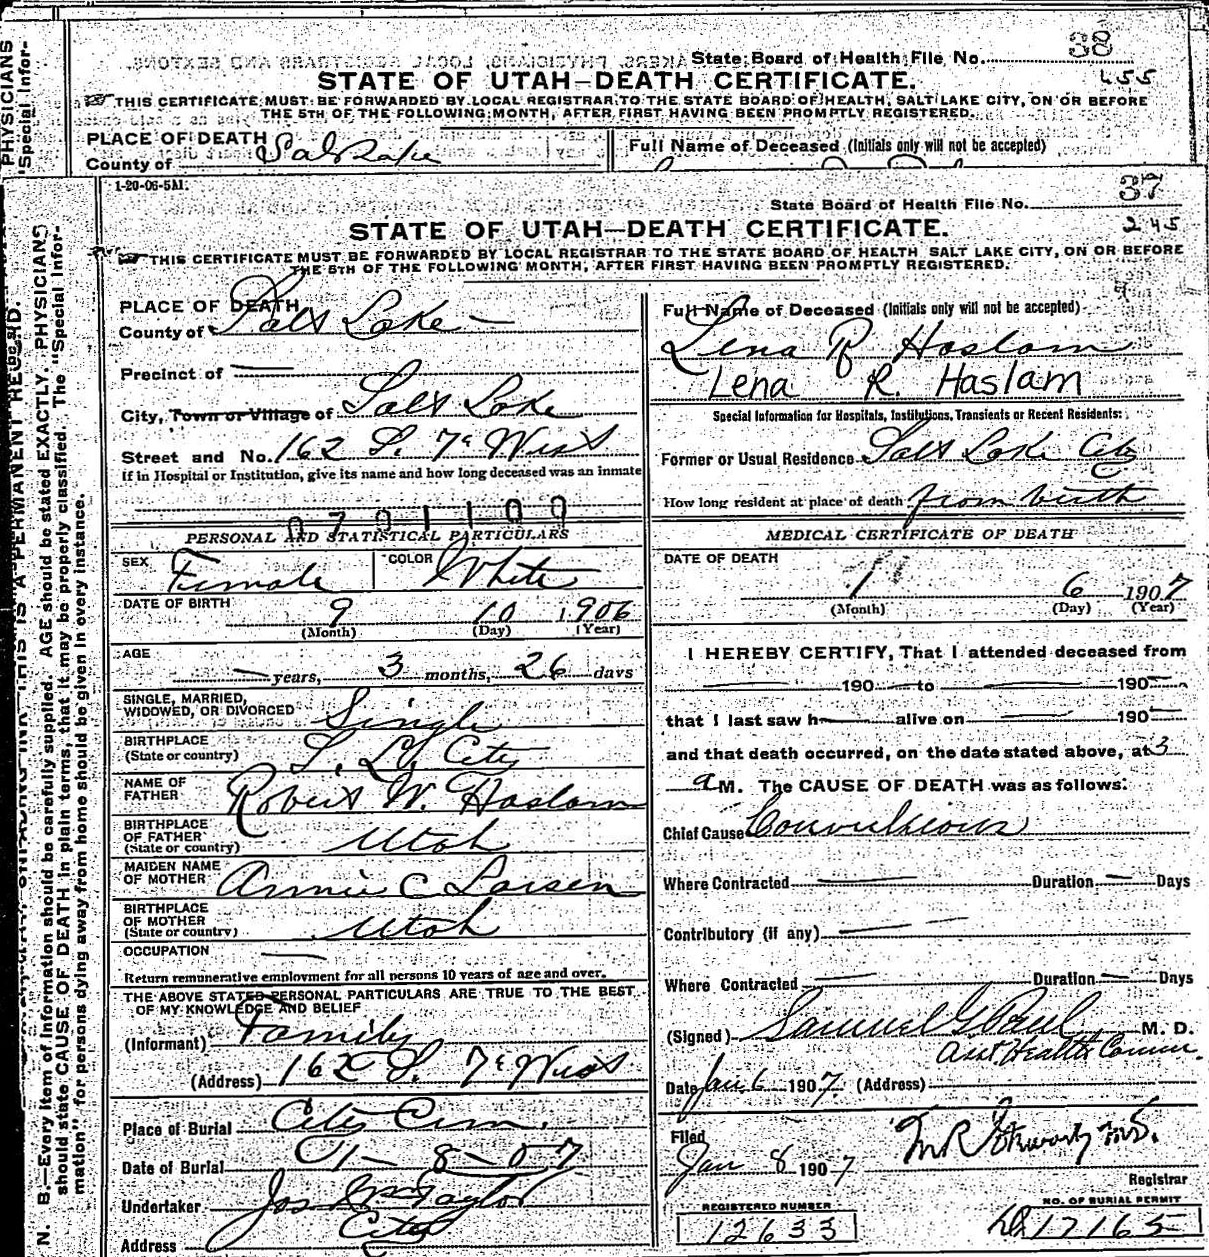 PHYSICIANS
"Special Infor-
AKERS, PHYSICIANS, LOCAL REGISTRARS AND SEXTONS.
State Board of Health File No. 38
455
STATE OF UTAH—DEATH CERTIFICATE.
THIS CERTIFICATE MUST BE FORWARDED BY LOCAL REGISTRAR TO THE STATE BOARD OF HEALTH, SALT LAKE CITY, ON OR BEFORE
THE 5TH OF THE FOLLOWING MONTH, AFTER FIRST HAVING BEEN PROMPTLY REGISTERED.
PLACE OF DEATH
County of Salt Lake
Full Name of Deceased (Initials only will not be accepted)
1-20-06-5M.
State Board of Health File No. 37
245
STATE OF UTAH—DEATH CERTIFICATE.
THIS CERTIFICATE MUST BE FORWARDED BY LOCAL REGISTRAR TO THE STATE BOARD OF HEALTH SALT LAKE CITY, ON OR BEFORE
THE 5TH OF THE FOLLOWING MONTH, AFTER FIRST HAVING BEEN PROMPTLY REGISTERED.
PLACE OF DEATH
County of Salt Lake —
Precinct of —
City, Town or Village of Salt Lake
Street and No. 162 S. 7th West
If in Hospital or Institution, give its name and how long deceased was an inmate
0701100
PERSONAL AND STATISTICAL PARTICULARS
SEX Female COLOR White
DATE OF BIRTH 9 10 1906
(Month) (Day) (Year)
AGE — years, 3 months, 26 days
SINGLE, MARRIED,
WIDOWED, OR DIVORCED Single
BIRTHPLACE
(State or country) S. L. City
NAME OF
FATHER Robert W. Haslam
BIRTHPLACE
OF FATHER
(State or country) Utah
MAIDEN NAME
OF MOTHER Annie C Larsen
BIRTHPLACE
OF MOTHER
(State or country) Utah
OCCUPATION —
Return remunerative employment for all persons 10 years of age and over.
THE ABOVE STATED PERSONAL PARTICULARS ARE TRUE TO THE BEST
OF MY KNOWLEDGE AND BELIEF
(Informant) Family
(Address) 162 S. 7th West
Place of Burial City Cem.
Date of Burial 1-8-07
Undertaker Jos Wm Taylor
Address City
Full Name of Deceased (Initials only will not be accepted)
Lena R Haslam
Lena R. Haslam
Special Information for Hospitals, Institutions, Transients or Recent Residents:
Former or Usual Residence Salt Lake City
How long resident at place of death from birth
MEDICAL CERTIFICATE OF DEATH
DATE OF DEATH
1 6 1907
(Month) (Day) (Year)
I HEREBY CERTIFY, That I attended deceased from
— 190— to — 190—
that I last saw h— alive on — 190—
and that death occurred, on the date stated above, at 3
a M. The CAUSE OF DEATH was as follows:
Chief Cause Convulsions
Where Contracted — Duration — Days
Contributory (if any) —
Where Contracted — Duration — Days
(Signed) Samuel G Paul M. D.
Asst Health Comm.
Date Jan 6 1907. (Address)
Filed
Jan 8 1907
Registrar
REGISTERED NUMBER
12633
NO. OF BURIAL PERMIT
17165
N. B.—Every item of information should be carefully supplied. AGE should be stated EXACTLY. PHYSICIANS
should state CAUSE OF DEATH in plain terms, that it may be properly classified. The "Special Infor-
mation" for persons dying away from home should be given in every instance.